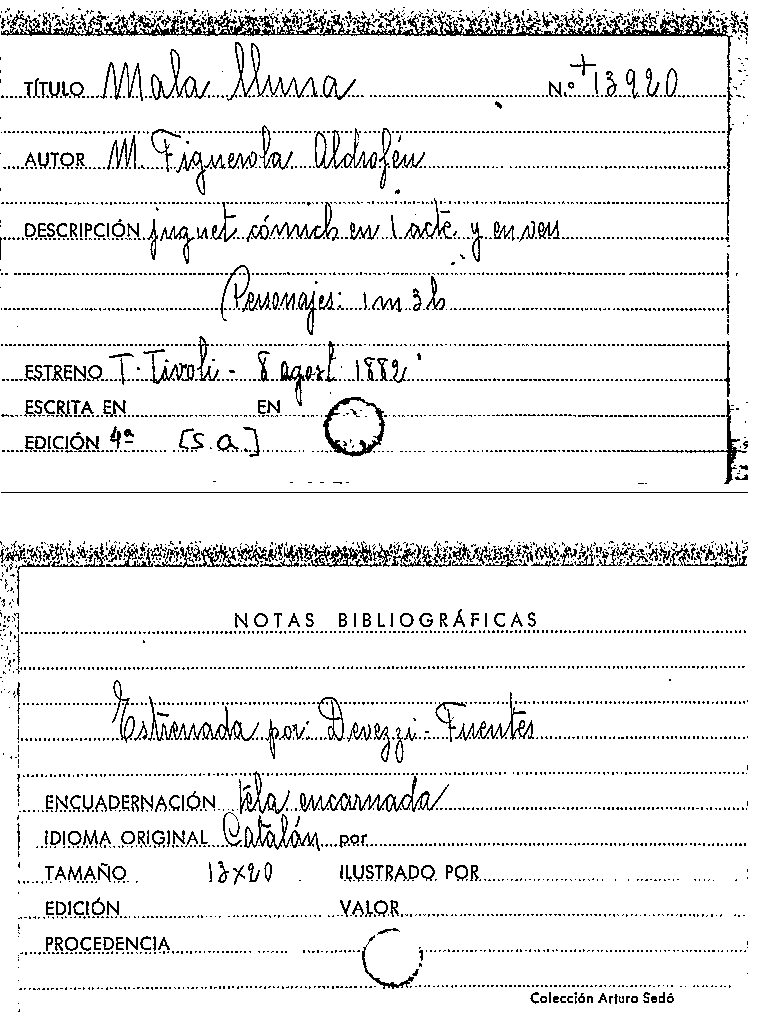 TÍTULO Mala lluna N.º +13920
AUTOR M. Figuerola Aldrofeu
DESCRIPCIÓN juguet cómich en 1 acte y en vers
(Personajes: 1 m 3 h
ESTRENO T. Tivoli - 8 agost 1882
ESCRITA EN EN
EDICIÓN 4ª [s.a.]
NOTAS BIBLIOGRÁFICAS
Estrenada por: Devezzi - Fuentes
ENCUADERNACIÓN tela encarnada
IDIOMA ORIGINAL Catalán por
TAMAÑO 13x20 ILUSTRADO POR
EDICIÓN VALOR
PROCEDENCIA
Colección Arturo Sedó